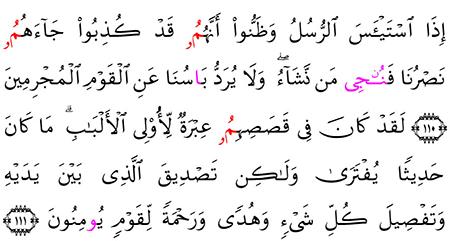 إِذَا ٱسْتَيْـَٔسَ ٱلرُّسُلُ وَظَنُّواْ أَنَّهُمُۥ قَدْ كُذِبُواْ جَآءَهُمُۥ
نَصْرُنَا فَنُۨجِى مَن نَّشَآءُ ۖ وَلَا يُرَدُّ بَاسُنَا عَنِ ٱلْقَوْمِ ٱلْمُجْرِمِينَ
﴿١١٠﴾ لَقَدْ كَانَ فِى قَصَصِهِمُۥ عِبْرَةٌ لِّأُوْلِى ٱلْأَلْبَٰبِ ۗ مَا كَانَ
حَدِيثًا يُفْتَرَىٰ وَلَٰكِن تَصْدِيقَ ٱلَّذِى بَيْنَ يَدَيْهِ
وَتَفْصِيلَ كُلِّ شَىْءٍ وَهُدًى وَرَحْمَةً لِّقَوْمٍ يُومِنُونَ ﴿١١١﴾